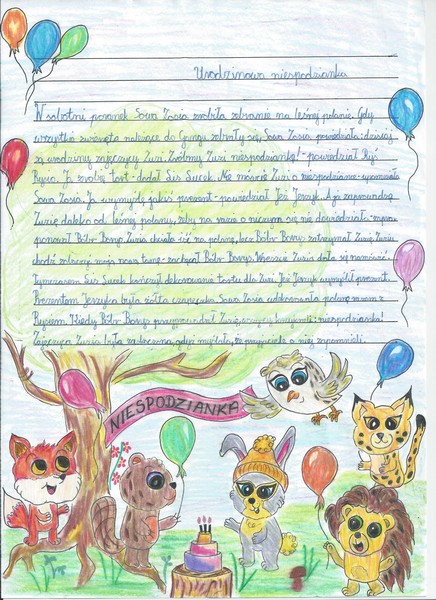 Urodzinowa niespodzianka
W sobotni poranek Sowa Zosia zrobiła zebranie na leśnej polanie. Gdy
wszystkie zwierzęta należące do Gangu zebrały się, Sowa Zosia powiedziała: dzisiaj
są urodziny zajęczycy Zuzi. Zróbmy Zuzi niespodziankę! - powiedział Ryś
Rysio. Ja zrobię tort - dodał Lis Sucek. Nie mówcie Zuzi o niespodziance - upomniała
Sowa Zosia. Ja wymyślę jakiś prezent - powiedział Jeż Jerzyk. A ja zaprowadzę
Zuzię daleko od leśnej polany, żeby na razie o niczym się nie dowiedziała -
Bóbr Borys. Zuzia chciała iść na polanę, lecz Bóbr Borys zatrzymał Zuzię. Zuziu,
chodź zobaczyć moją nową tamę - zachęcał Bóbr Borys. Wreszcie Zuzia dała się namówić.
Tymczasem Lis Sucek kończył dekorowanie tortu dla Zuzi. Jeż Jerzyk wymyślił prezent.
Prezentem Jerzyka była żółta czapeczka. Sowa Zosia udekorowała polanę razem z
Rysiem. Kiedy Bóbr Borys przyprowadził Zuzię, wszyscy krzyknęli: niespodzianka!
Zajęczyca Zuzia była zaskoczona, gdyż myślała, że przyjaciele o niej zapomnieli.
NIESPODZIANKA